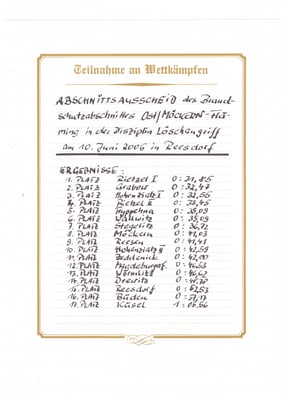 Teilnahme an Wettkämpfen
ABSCHNITTSAUSSCHEID des Brand-
schutzabschnittes OST/MÖCKERN-Flä-
ming in der Disziplin Löschangriff
am 10. Juni 2006 in Reesdorf
ERGEBNISSE:
1. PLATZ Rietzel I 0:31,85
2. PLATZ Grabow 0:32,47
3. PLATZ Hohenziatz I 0:32,55
4. PLATZ Rietzel II 0:33,45
5. PLATZ Tryppehna 0:35,09
6. PLATZ Wallwitz 0:35,09
7. PLATZ Stegelitz 0:36,72
8. PLATZ Möckern 0:41,03
9. PLATZ Reesen 0:41,41
10. PLATZ Hohenziatz II 0:42,59
11. PLATZ Zeddenick 0:42,80
12. PLATZ Magdeburgerf. 0:46,53
13. PLATZ Wörmlitz 0:46,62
14. PLATZ Drewitz 0:48,78
15. PLATZ Reesdorf 0:52,53
16. PLATZ Büden 0:57,17
17. PLATZ Küsel 1:05,56